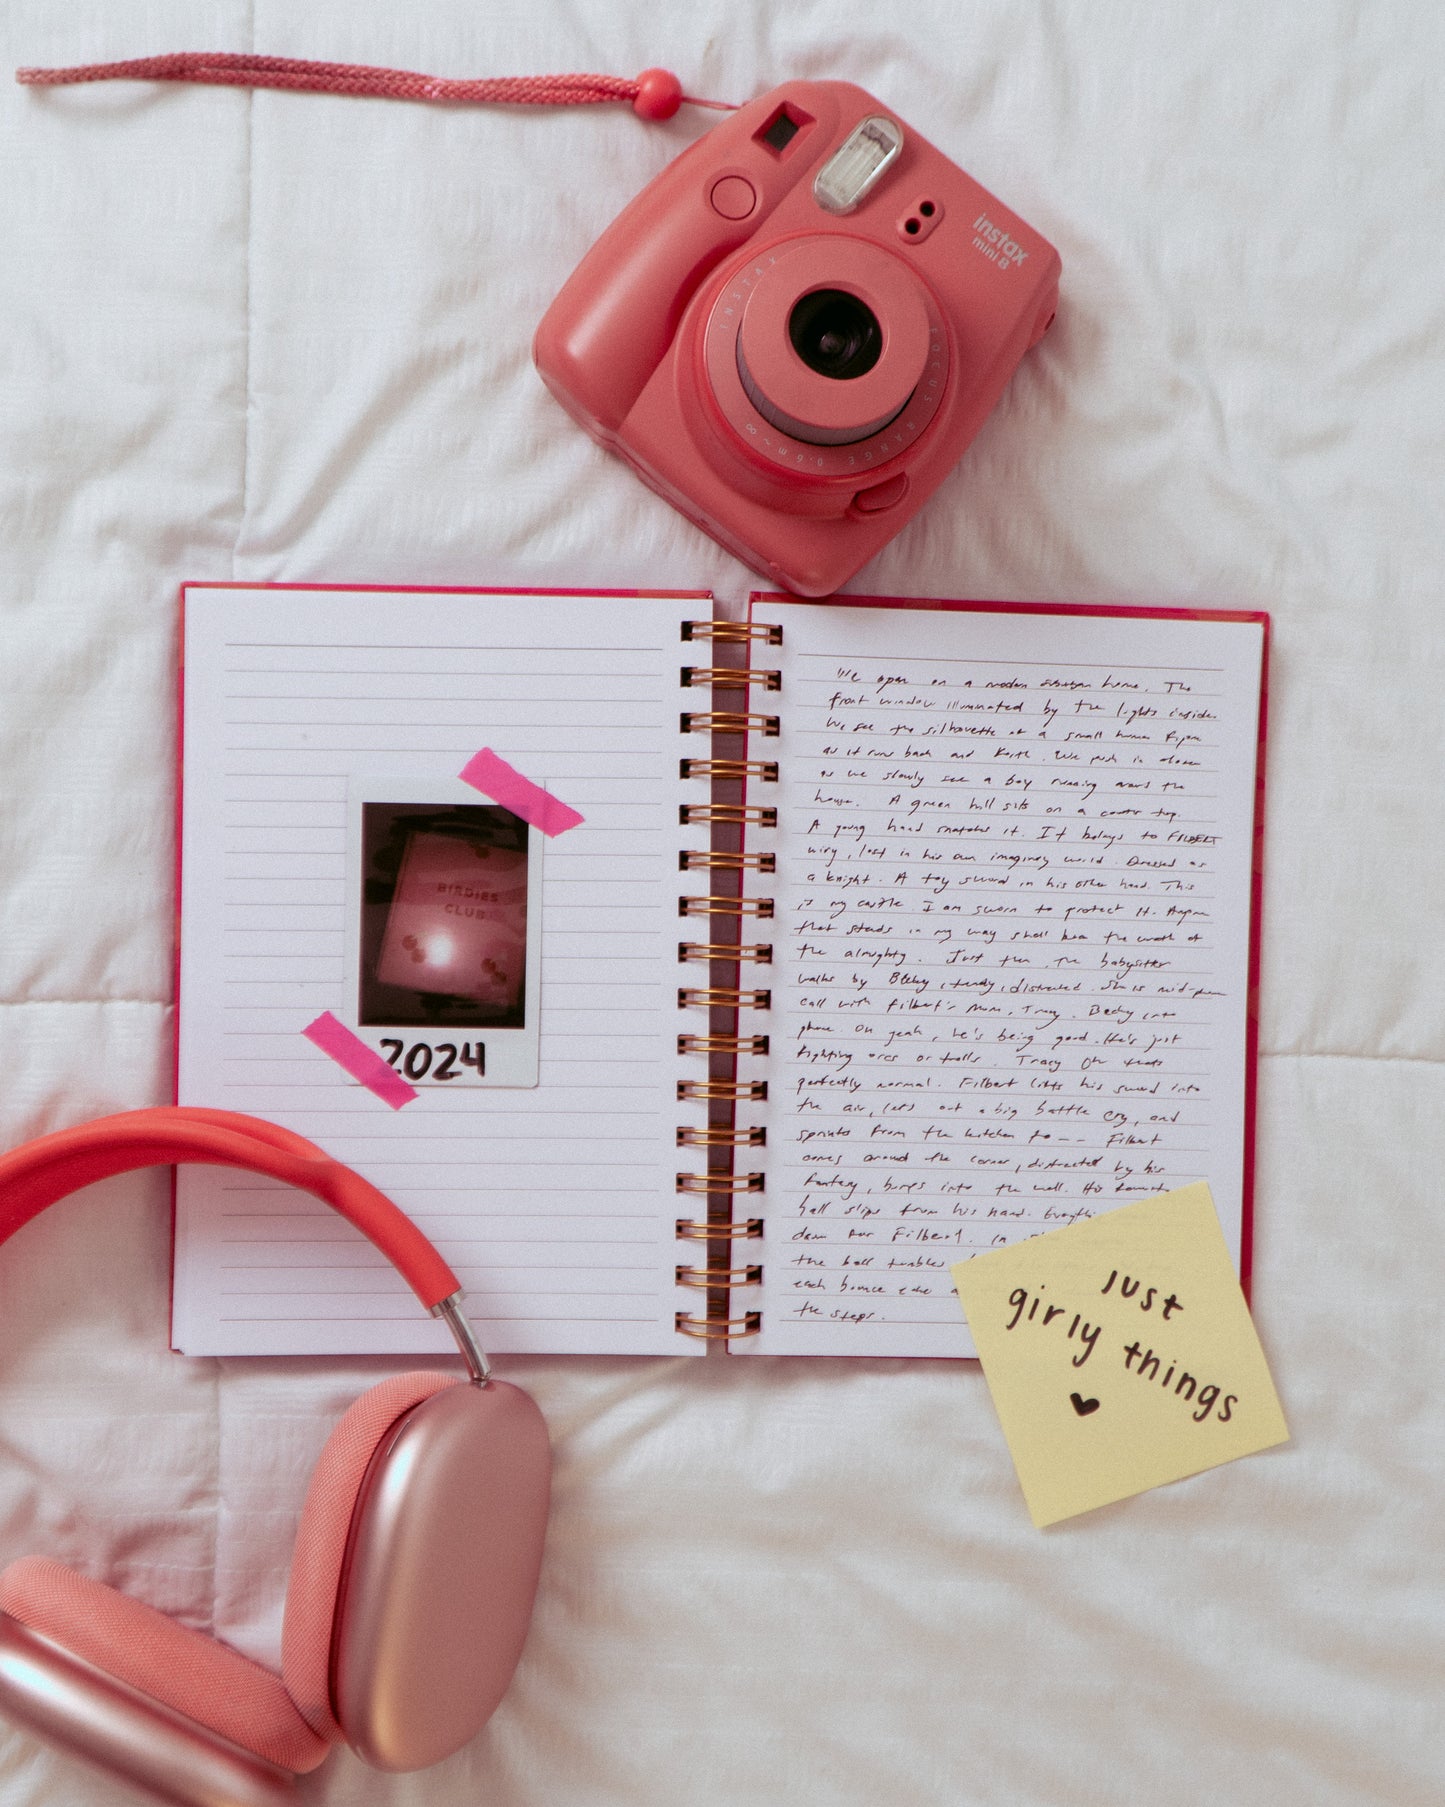 instax
mini 8
INSTAX
FOCUS RANGE 0.6m~∞
BIRDIES
CLUB
2024
We open on a modern suburban home. The
front window illuminated by the lights inside.
We see the silhouette of a small human figure
as it runs back and forth. We push in closer
as we slowly see a boy running around the
house. A green ball sits on a counter top.
A young hand snatches it. It belongs to FILBERT
wiry, lost in his own imaginary world. Dressed as
a knight. A toy sword in his other hand. This
is my castle. I am sworn to protect it. Anyone
that stands in my way shall bear the wrath of
the almighty. Just then, the babysitter
walks by Becky, trendy, distracted. She is mid-phone
call with Filbert's Mom, Tracy. Becky into
phone. Oh yeah, he's being good. He's just
fighting orcs or trolls. Tracy Oh thats
perfectly normal. Filbert lifts his sword into
the air, lets out a big battle cry, and
sprints from the kitchen to -- Filbert
comes around the corner, distracted by his
fantasy, bumps into the wall. His
ball slips from his hand.
down for Filbert. In
the ball tumbles
each bounce
the steps.
just
girly things